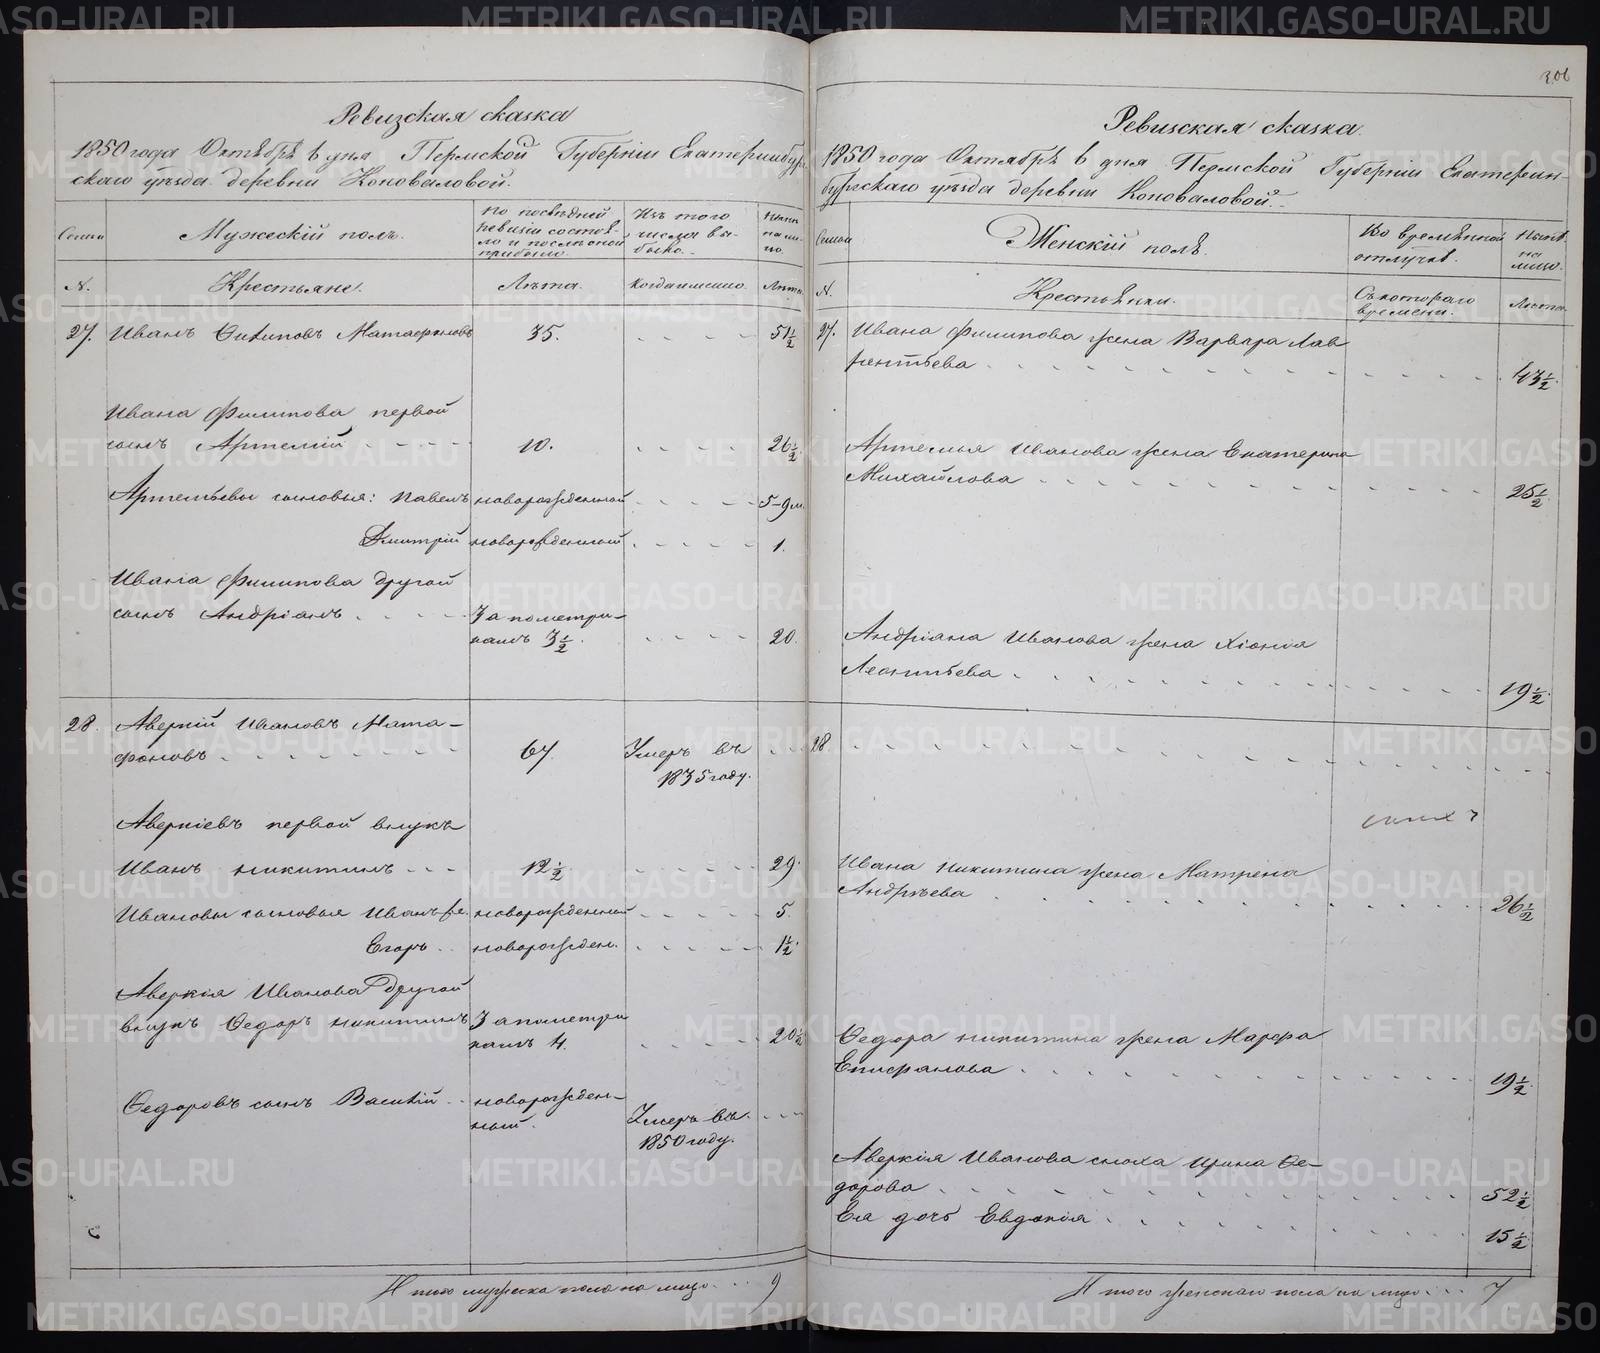 306
Ревизская сказка
1850 года Октября 6 дня Пермской Губерніи Екатеринбур-
скаго уѣзда деревни Коноваловой.
Семьи
Мужескій полъ.
По последней
ревизіи состоя-
ло и послѣ оной
прибыло.
Изъ того
числа вы-
было.
Нынѣ
на ли-
цо.
N.
Крестьяне.
Лѣта.
Когда именно.
Лѣта.
27. Иванъ Филиповъ Матафоновъ 35. 51 ½
Ивана Филипова первой
сынъ Артемій 10. 26 ½
Артемьевы сыновья: Павелъ новорожденной 5-9 м.
Дмитрій новорожденный 1.
Ивана Филипова другой
сынъ Андріанъ За пометри-
камъ 3 ½ 20.
28. Аверкій Ивановъ Мата-
фоновъ 67. Умеръ въ
1835 году.
Аверкіевъ первой внукъ
Иванъ Никитинъ 12 ½ 29.
Ивановы сыновья Иванъ новорожденный 5.
Егоръ новорожден. 1 ½
Аверкія Иванова другой
внукъ Федоръ Никитинъ За пометри
камъ 4. 20 ½
Федоровъ сынъ Василій новорожден-
ный. Умеръ въ
1850 году.
Итого мужеска пола на лицо 9
Ревизская сказка.
1850 года Октября 6 дня Пермской Губерніи Екатерин-
бургскаго уѣзда деревни Коноваловой.
Семьи
Женскій полъ.
Во времянной
отлучкѣ.
Нынѣ
на
лицо.
N.
Крестьянки.
Съ котораго
времени.
Лѣта.
27. Ивана Филипова жена Варвара Лав
рентьева 43 ½
Артемья Иванова жена Екатерина
Михайлова 25 ½
Андріана Иванова жена Хіонія
Леонтьева 19 ½
28.
Ивана Никитина жена Матрена
Андрѣева 26 ½
Федора Никитина жена Марфа
Епифанова 19 ½
Аверкія Иванова сноха Ирина Фе-
дорова 52 ½
Ея дочь Евдокія 15 ½
Итого женскаго пола на лицо 7
METRIKI.GASO-URAL.RU